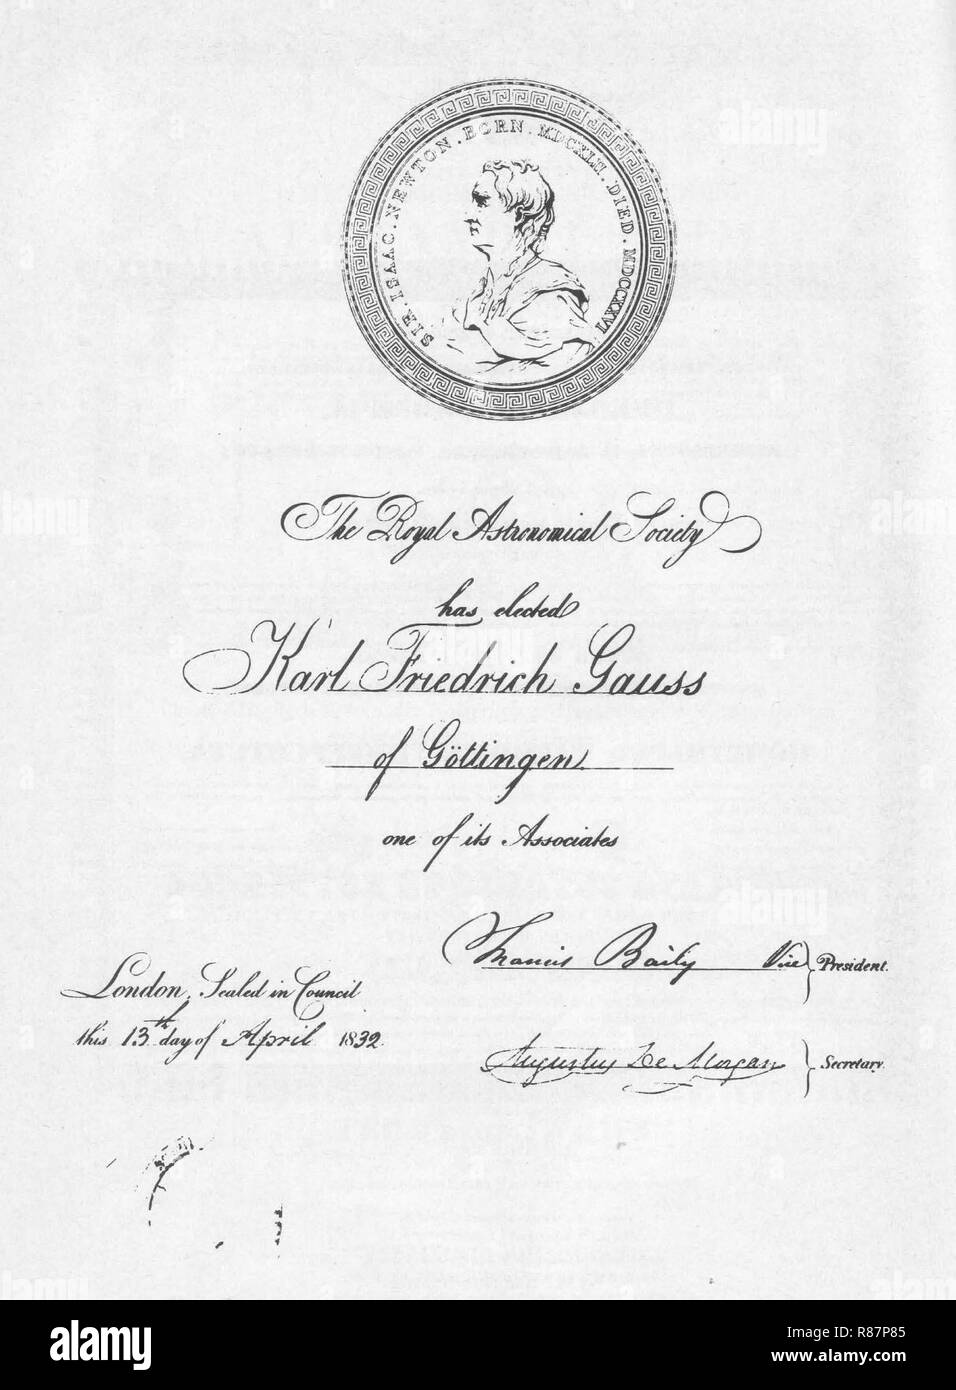 SIR. ISAAC. NEWTON. BORN. MDCXLII. DIED. MDCCXXVI
The Royal Astronomical Society
has elected
Karl Friedrich Gauss
of Göttingen
one of its Associates
Francis Baily Vice President.
London, Sealed in Council
this 13th day of April 1832
Augustus De Morgan Secretary.
alamy
Image ID: R87P85
www.alamy.com